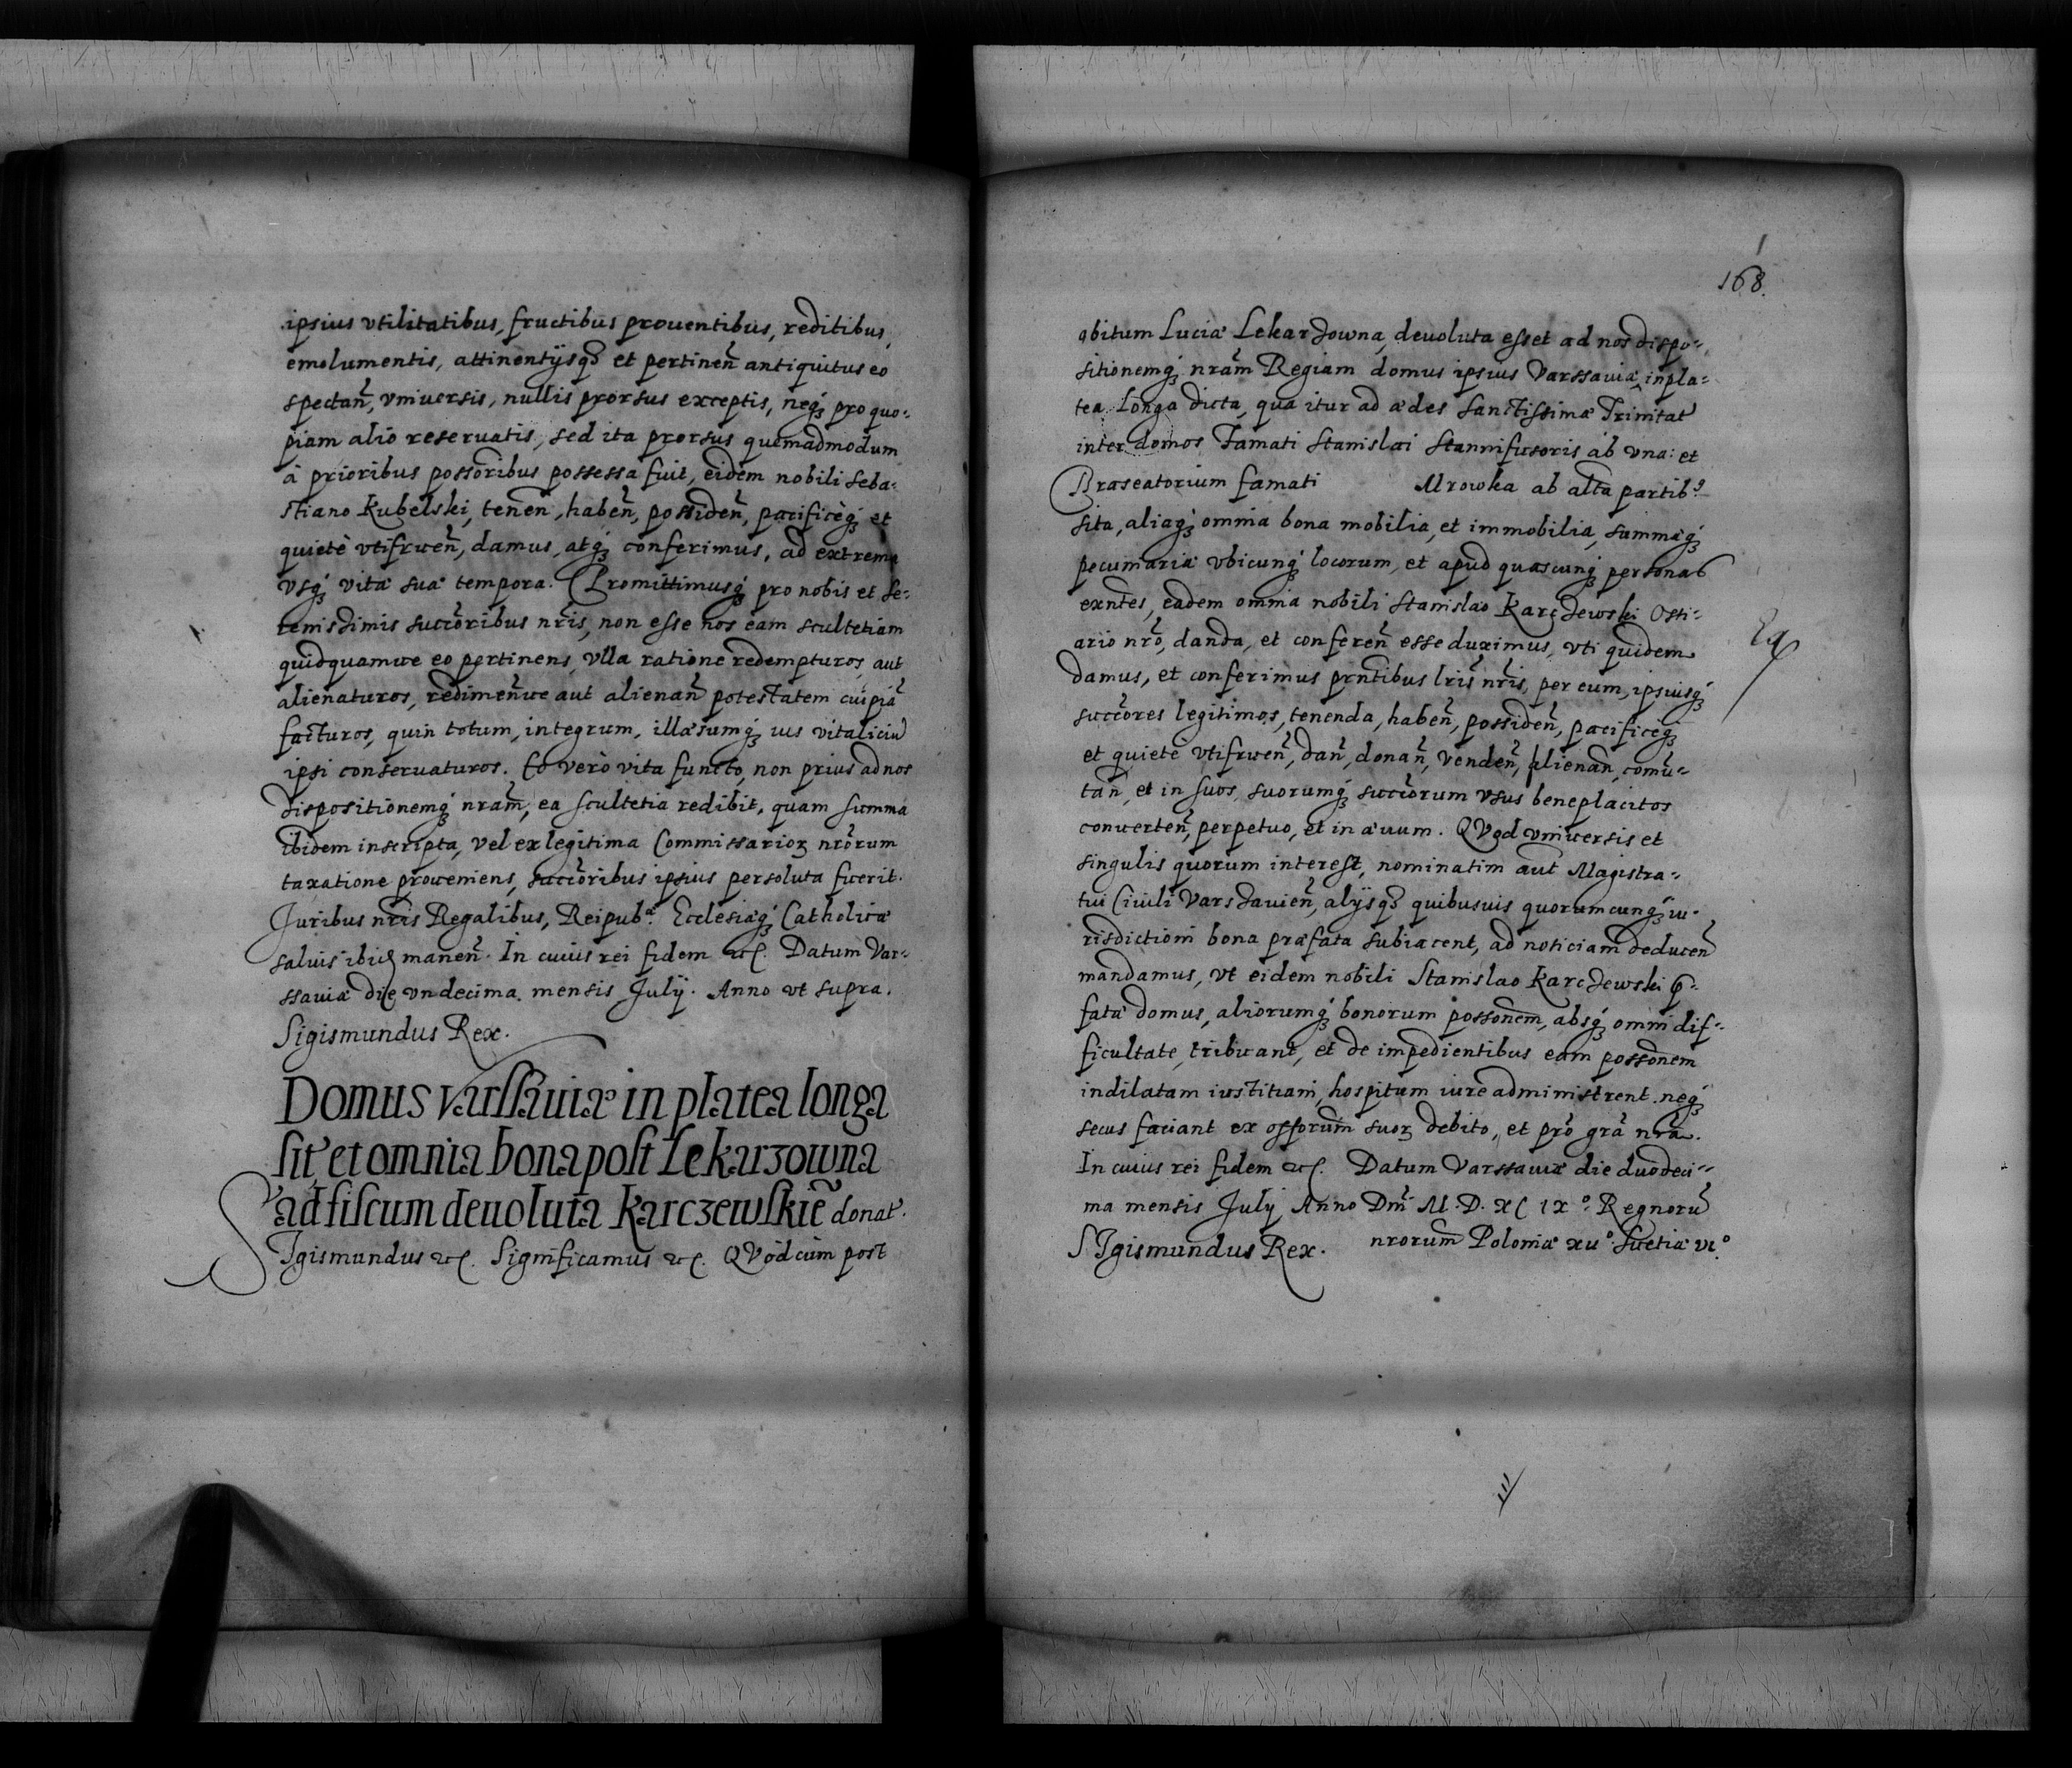 ipsius vtilitatibus, fructibus prouentibus, reditibus,
emolumentis, attinentijsq3 et pertineñ antiquitus eo
spectañ, vniuersis, nullis prorsus exceptis, neq3 pro quo-
piam alio reseruatis, sed ita prorsus quemadmodum
à prioribus possoribus possessa fuit, eidem nobili Seba-
stiano Kubelski, teneñ, habeñ, possideñ, pacificèq3 et
quietè vtifrueñ, damus, atq3 conferimus, ad extrema
vsq3 vitæ suæ tempora. Promittimusq3 pro nobis et Se-
renissimis succoribus nris, non esse nos eam scultetiam
quidquamue eo pertinens, vlla ratione redempturos, aut
alienaturos, redimeñue aut alienañ potestatem cuipiã
facturos, quin totum, integrum, illæsumq3 ius vitaliciũ
ipsi conseruaturos. Eo verò vita functo, non prius ad nos
dispositionemq3 nram, ea scultetia redibit, quam summa
ibidem inscripta, vel ex legitima Commissarioꝝ nrorum
taxatione proueniens, succoribus ipsius persoluta fuerit.
Juribus nris Regalibus, Reipubᵉ Ecclesiæq3 Catholicæ
saluis ibidẽ maneñ. In cuius rei fidem etc. Datum Var-
ssauiæ die vndecima mensis Julij. Anno vt supra.
Sigismundus Rex.
Domus Varssauiæ in platea longa
sit̃ et omnia bona post Lekarzowna
ad fiscum deuoluta Karczewskiẽ donat̃.
SIgismundus etc. Significamus etc. QVod cùm post
168.
obitum Luciæ Lekarzowna, deuoluta esset ad nos dispo-
sitionemq3 nram Regiam domus ipsius Varssauiæ, in pla-
tea Longa dicta, qua itur ad ædes Sanctissimæ Trinitat̃
inter domos Famati Stanislai Stannifusoris ab vna: et
Braseatorium famati Mrowka ab alta partib9
sita, aliaq3 omnia bona mobilia, et immobilia, summæq3
pecuniariæ vbicunq3 locorum, et apud quascunq3 personas
exntes, eadem omnia nobili Stanislao Karczewski Osti-
ario nro, danda, et confereñ esse duximus, vti quidem
damus, et conferimus prntibus lris nris, per eum, ipsiusq3
succores legitimos, tenenda, habeñ, possideñ, pacificèq3
et quietè vtifrueñ, dañ, donañ, vendeñ, alienañ, comu-
tañ, et in suos, suorumq3 succorum vsus beneplacitos
conuerteñ, perpetuo, et in æuum. QVod vniuersis et
singulis quorum interest, nominatim aut Magistra-
tui Ciuili Varssauieñ, alijsq3 quibusuis quorumcunq3 iu-
risdictioni bona præfata subiacent, ad noticiam deduceñ
mandamus, vt eidem nobili Stanislao Karczewski p-
fatæ domus, aliorumq3 bonorum possonem, absq3 omni dif-
ficultate, tribuant, et de impedientibus eam possonem
indilatam iustitiam, hospitum iure administrent. neq3
secus faciant ex offorum suoꝝ debito, et pro gra nra.
In cuius rei fidem etc. Datum Varssauiæ die duodeci-
ma mensis Julij Anno Dni M.D.XCIXº. Regnorũ
nrorum Poloniæ xııº. Suetiæ vıº.
SIgismundus Rex.